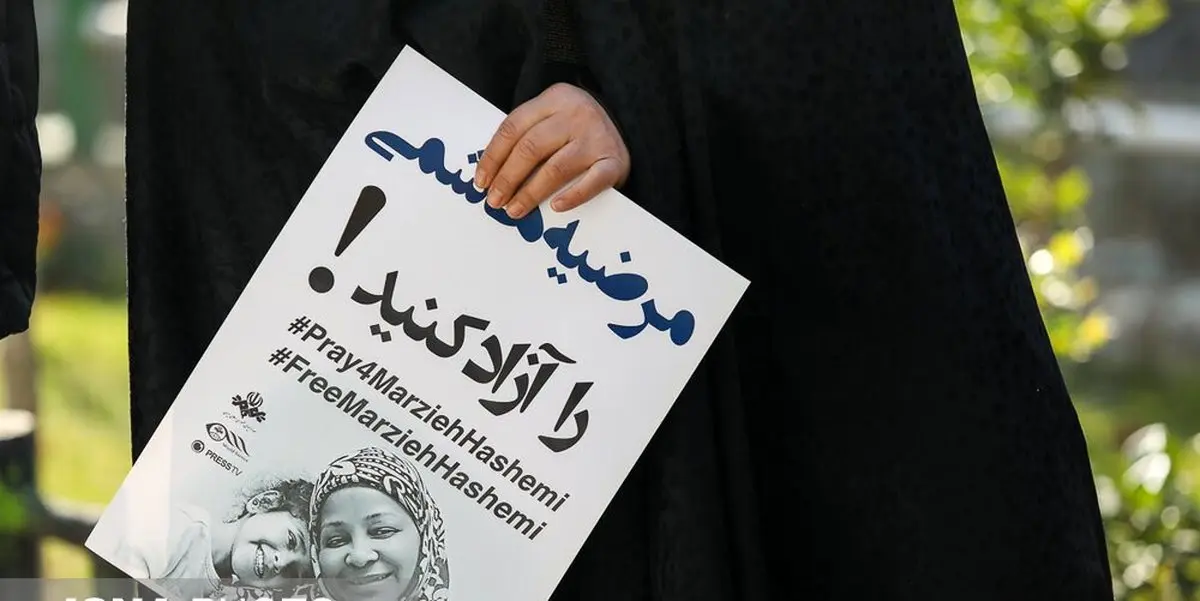 مرضیه هاشمی
را آزاد کنید !
#Pray4MarziehHashemi
#FreeMarziehHashemi
PRESSTV
ISNA PHOTO